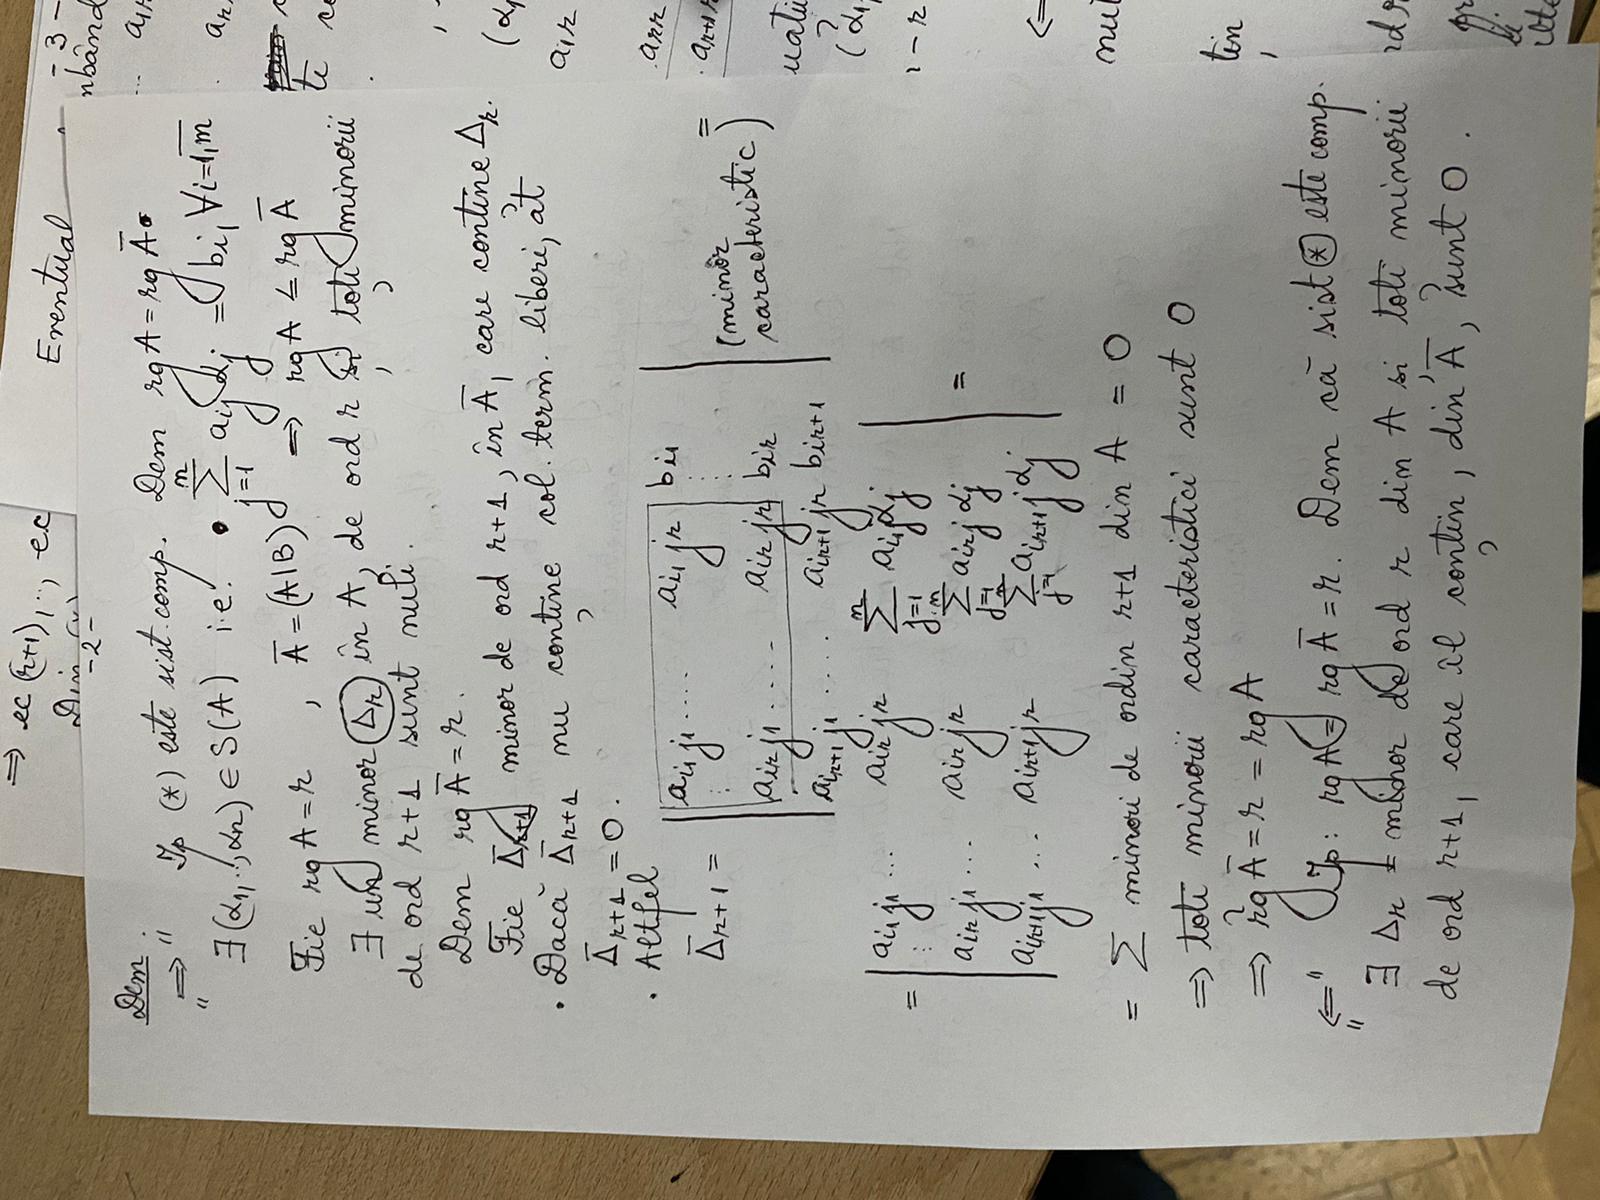 ⇒ ec (r+1), .., ec
Din (*)
Eventual
- 3 -
- 2 -
Dem.
"⇒" Ip (*) este sist. comp. Dem rg A = rg Ā.
∃ (α₁, .., αₙ) ∈ S(A) i.e. • ∑_{j=1}^{n} a_{ij} α_j = b_i, ∀ i = 1,m
Fie rg A = r , Ā = (A|B) ⇒ rg A ≤ rg Ā
∃ un minor Δ_r în A, de ord r și toți minorii
de ord r+1 sunt nuli.
Dem rg Ā = r.
Fie Δ̄_{r+1} minor de ord r+1, în Ā, care conține Δ_r.
• Dacă Δ̄_{r+1} nu conține col. term. liberi, at
Δ̄_{r+1} = 0.
• Altfel
Δ̄_{r+1} = | a_{i₁j₁} .... a_{i₁j_r} b_{i₁}
⋮ ⋮
a_{i_r j₁} .... a_{i_r j_r} b_{i_r}
a_{i_{r+1} j₁} .... a_{i_{r+1} j_r} b_{i_{r+1}} | (minor caracteristic) =
= | a_{i₁j₁} ... a_{i_r j_r} ∑_{j=1}^{n} a_{i₁j} α_j
⋮
a_{i_r j₁} ... a_{i_r j_r} ∑_{j=1}^{n} a_{i_r j} α_j
a_{i_{r+1} j₁} ... a_{i_{r+1} j_r} ∑_{j=1}^{n} a_{i_{r+1} j} α_j | =
= ∑ minori de ordin r+1 din A = 0
⇒ toți minorii caracteristici sunt 0
⇒ rg Ā = r = rg A
"⇐" Ip: rg A = rg Ā = r. Dem că sist (*) este comp.
∃ Δ_r = minor de ord r din A și toți minorii
de ord r+1, care îl conțin, din Ā, sunt 0.